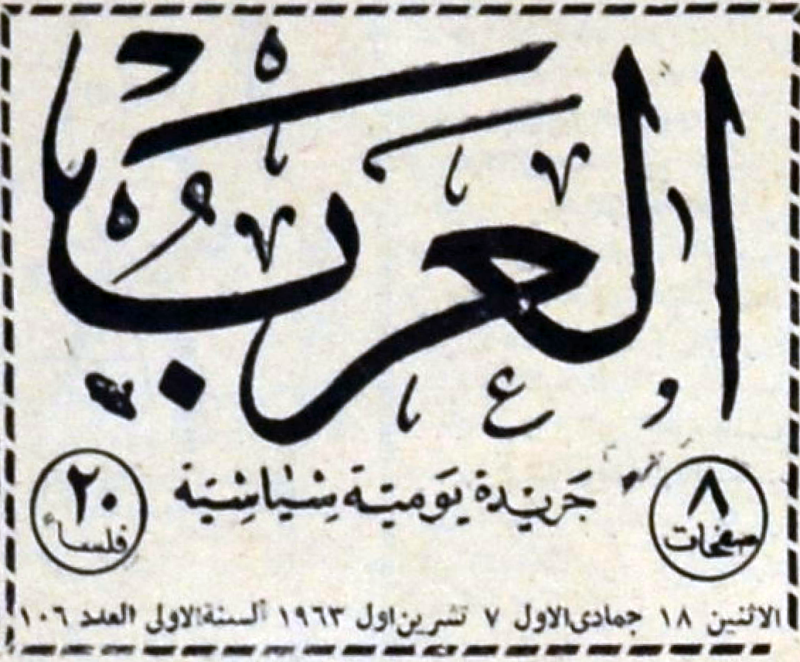 العرب
٨ صفحات
جريدة يومية سياسية
٢٠ فلسا
الاثنين ١٨ جمادى الاول ٧ تشرين اول ١٩٦٣ السنة الاولى العدد ١٠٦